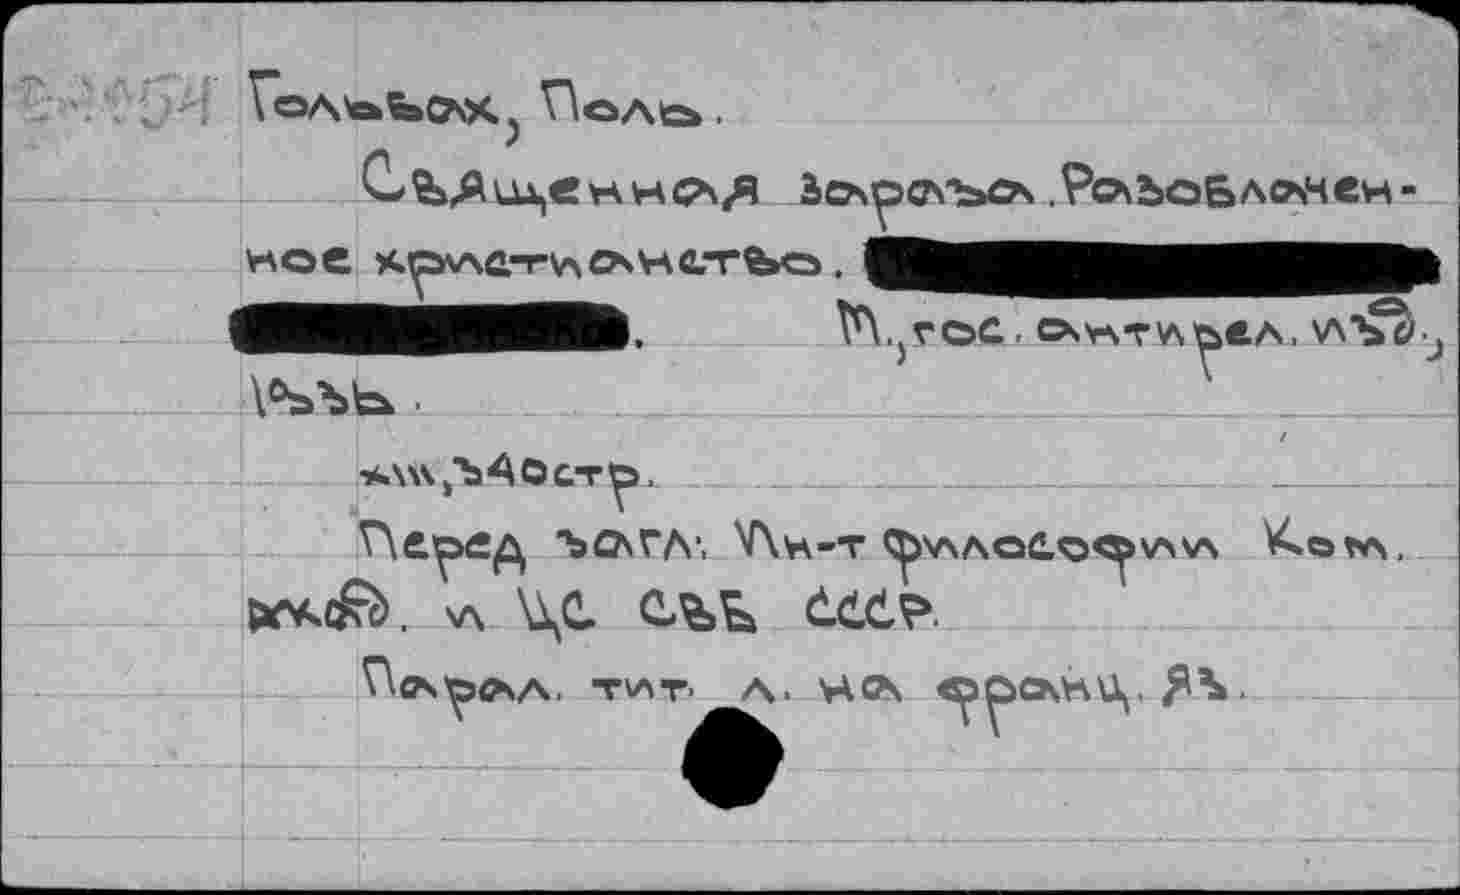 Гольбах, Поль.
Священная зараза. Разоблачен-
ное христианство.
М., гос. антирел. изд.,
1933.
Перед загл: Ин-т философии Ком.
акад. и ЦС СВБ СССР.
Парал. тит. л. на франц. яз.